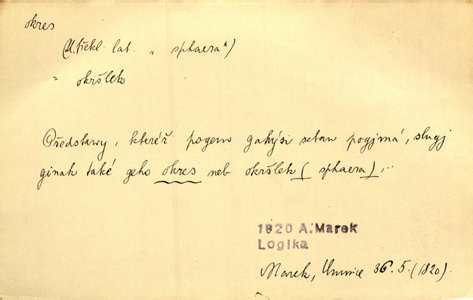 okres
(překl. lat. „ sphaera“)
= okršlek
Představy, kteréž pogem gakýsi sebau pogjmá, slugj
ginak také geho okres neb okršlek (sphaera),..
1820 A.Marek
Logika
Marek, Umnice 36.5.(1820).